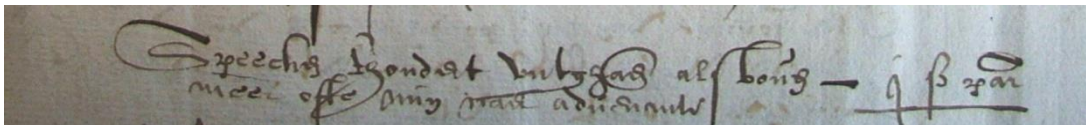 Speecken thondert buitghaen als boven — j ß par
meer ofte min naer advenante